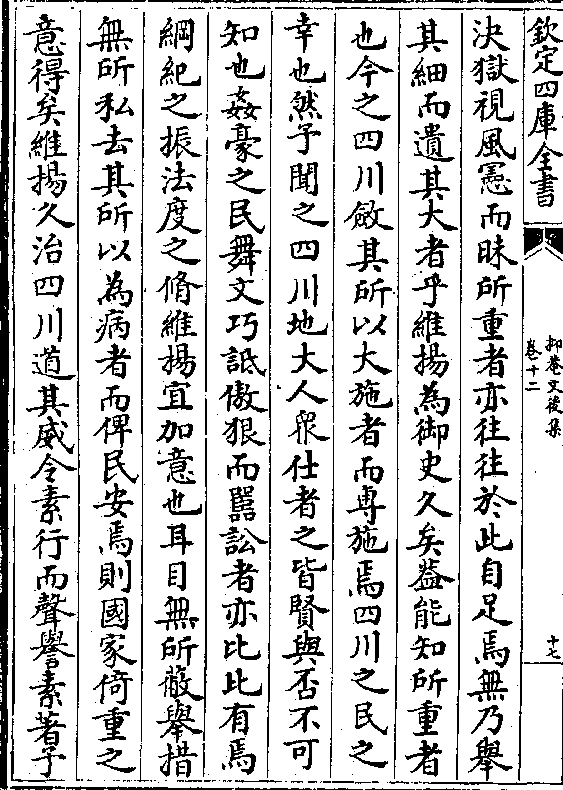 欽定四庫全書
抑菴文後集
卷十二
十七
決獄視風憲而昧所重者亦往往於此自足焉無乃舉
其細而遺其大者乎維揚為御史久矣葢能知所重者
也今之四川斂其所以大施者而專施焉四川之民之
幸也然予聞之四川地大人衆仕者之皆賢與否不可
知也姦豪之民舞文巧詆傲狠而嚚訟者亦比比有焉
綱紀之振法度之脩維揚宜加意也耳目無所蔽舉措
無所私去其所以為病者而俾民安焉則國家倚重之
意得矣維揚久治四川道其威令素行而聲譽素著予